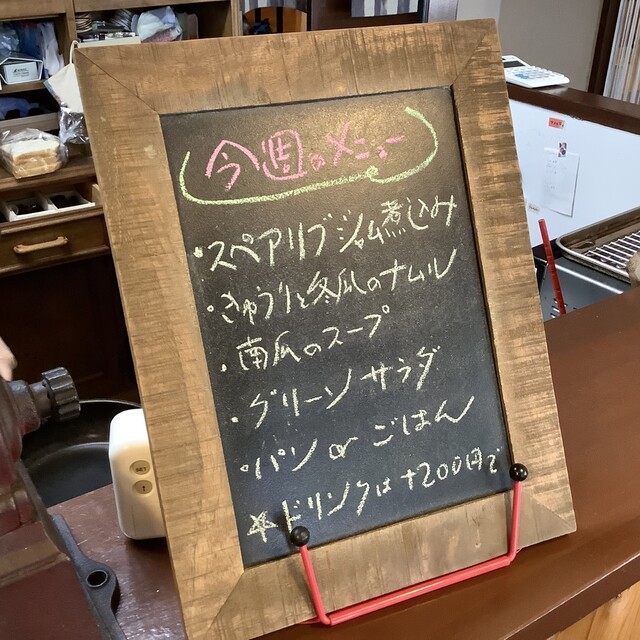 今週のメニュー
・スペアリブジャム煮込み
・きゅうりと冬瓜のナムル
・南瓜のスープ
・グリーンサラダ
・パン or ごはん
☆ドリンクは+200円で